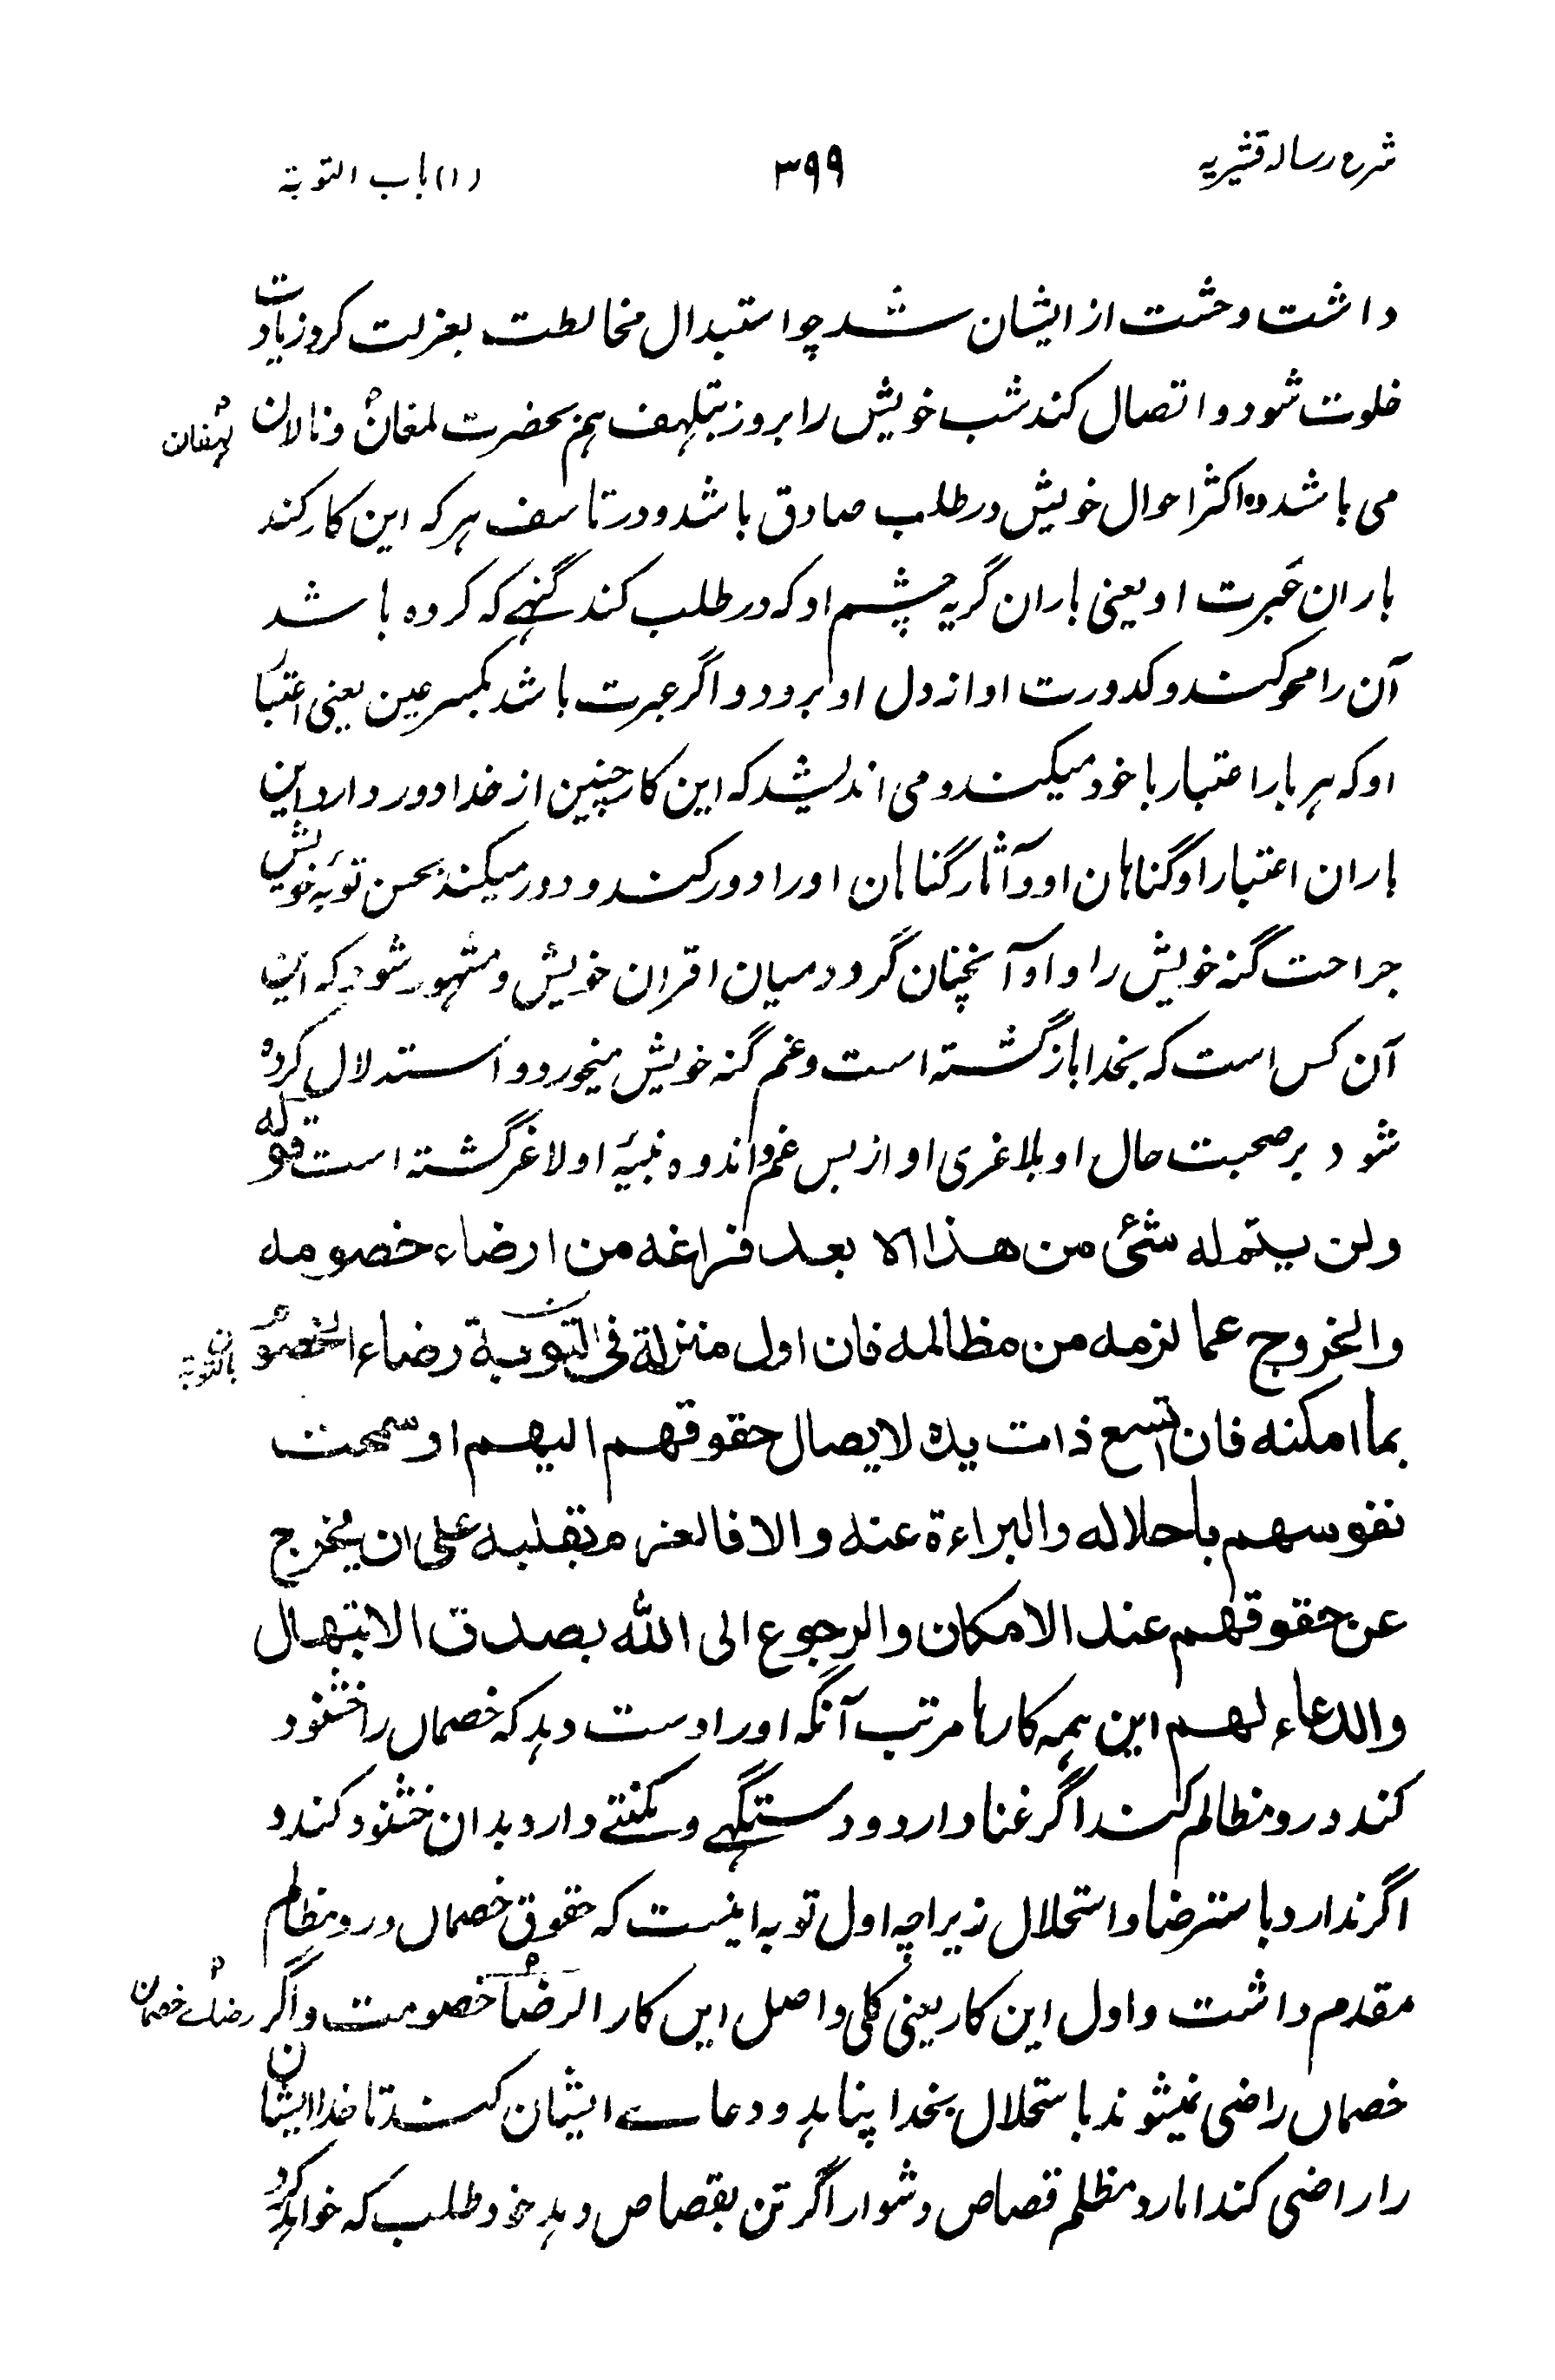 شرح رسالہ قشیریہ
۳۹۹
(۱) باب التوبۃ
داشت وحشت از ایشان شد چو استبدال مخالطت بعزلت کرد زیادت
خلوت شود و اتصال کند شب خویش را بروز بتلہف ہم بحضرت لمغان و نالان
لہفان
می باشد وہ اکثر احوال خویش در طلب صادق باشد و در تاسف ہر کہ این کار کند
باران عَبرت او یعنی باران گریہ چشم او کہ در طلب کند گنہے کہ کردہ باشد
آن را محو کند و کدورت او از دل او برود و اگر عبرت باشد بکسر عین یعنی اعتبا
او کہ ہر بار اعتبار با خود میکند و می اندیشد کہ این کار چنین از خدا دور دارد این
باران اعتبار او گناہان او و آثار گناہان او را دور کند و دور میکند بحسن توبۂ خویش
جراحت گنہ خویش را و او آنچنان گرود میان اقران خویش و مشہور شود کہ این
آن کس است کہ بخدا بازگشتہ است و غم گنہ خویش میخورد و استدلال کردہ
شود بر صحبت حال او بلاغری او از بس غم و اندوہ نبیۂ او لاغر گشتہ است قولہ
ولن یتم له شئ من هذا الا بعد فراغه من ارضاء خصومه
والخروج عما لزمه من مظالمه فان اول منزلة فی التوبة رضاء الخصوم
بالتوبة
بما امکنه فان اتسع ذات یده لایصال حقوقهم الیهم او سمحت
نفوسهم باحلاله والبراءة عنه والا فالعزم بقلبه علی ان یخرج
عن حقوقهم عند الامکان والرجوع الی الله بصدق الابتهال
والدعاء لهم این ہمہ کارہا مرتب آنگہ او را دست دہد کہ خصماں را خشنود
کند و رد مظالم کند اگر غنا دارد و دستگہے و مکنتے دارد بدان خشنود کند و
اگر ندارد باسترضا و استحلال زیراچہ اول توبہ اینست کہ حقوق خصماں و رد مظالم
مقدم داشت و اول این کار یعنی کلی و اصل ایں کار الرضا خصومت و اگر
رضائے خصمان
خصماں راضی نمیشوند باستحلال بخدا پناہد و دعاے ایشان کند تا خدا ایشان
را راضی کند اما رد مظلم قصاص دشوار اگر تن بقصاص دہد خود طلب کہ خواہد کرد